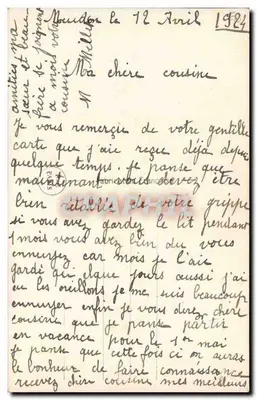 Moudon le 12 Avril 1924
Ma chère cousine
Je vous remerçie de votre gentille
carte que j'aie reçue déja depuis
quelque temps. je panse que
maintenant vous devez être
bien établie de votre grippe
si vous avez gardez le lit pendant
1 mois vous avez bien du vous
ennuyez car mois je l'aie
gardi quelque jours aussi j'ai
eu les oreillons je me suis beaucoup
ennuyer enfin je vous direz chère
cousine que je panse partir
en vacance pour le 1er mai
je panse que cette fois ci on auras
le bonheur de faire connaissance
recevez chère cousine mes meilleurs
amitiés ma
sœur et beau
frère se joignent
a mois votre
cousine
M Mellet